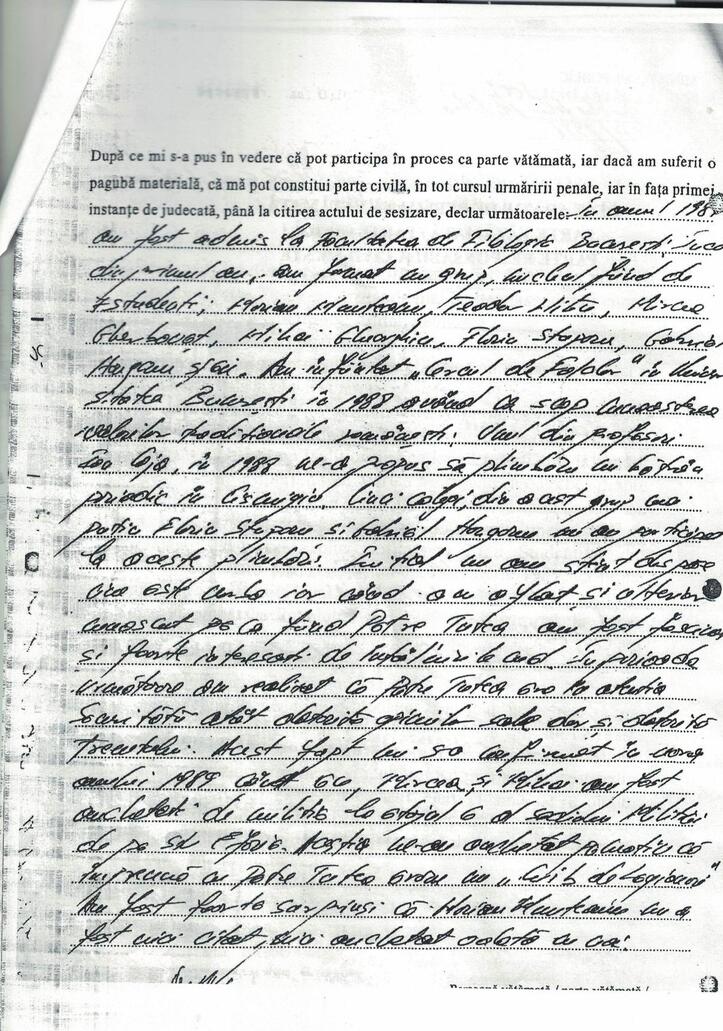 După ce mi s-a pus în vedere că pot participa în proces ca parte vătămată, iar dacă am suferit o
pagubă materială, că mă pot constitui parte civilă, în tot cursul urmăririi penale, iar în fața primei
instanțe de judecată, până la citirea actului de sesizare, declar următoarele: În anul 198
am fost admis la Facultatea de Filologie București. Încă
din primul an, am format un grup, nucleul fiind de
5 studenți; Marian Munteanu, Teodor, Mircea
Mihai Gheorghiu, Florin Stepan, Gabriel
Honganu și eu. Am înființat „Cercul de Folclor" în Univer
sitatea București în 1988 având ca scop cunoașterea
valorilor tradiționale românești. Unul din profesori
în 1988 ne-a propus să plimbăm un bătrân
periodic în Cișmigiu. Cinci colegi, din acest grup mai
puțin Florin Stepan și Gabriel Honganu au participat
la aceste plimbări. Inițial nu am știut despre
cine este vorba iar când am aflat, și ulterior
cunoscut pe ca fiind Petre Țuțea am fost fascinați
și foarte interesați de întâlnirile cu d. În perioada
următoare am realizat că Petre Țuțea era în atenția
Securității atât datorită opiniilor sale dar și datorită
trecutului. Acest fapt ni s-a confirmat în vara
anului 1989 când eu, Mircea și Mihai am fost
anchetați de miliție la etajul 6 al sediului Miliției
de pe str Eforie. Aceștia ne-au anchetat pe motiv că
împreună cu Petre Țuțea eram un „Cuib de legionari"
Am fost foarte surprinși că Marian Munteanu nu a
fost nici citat, nici anchetat odată cu noi.
Persoană vătămată / parte vătămată /